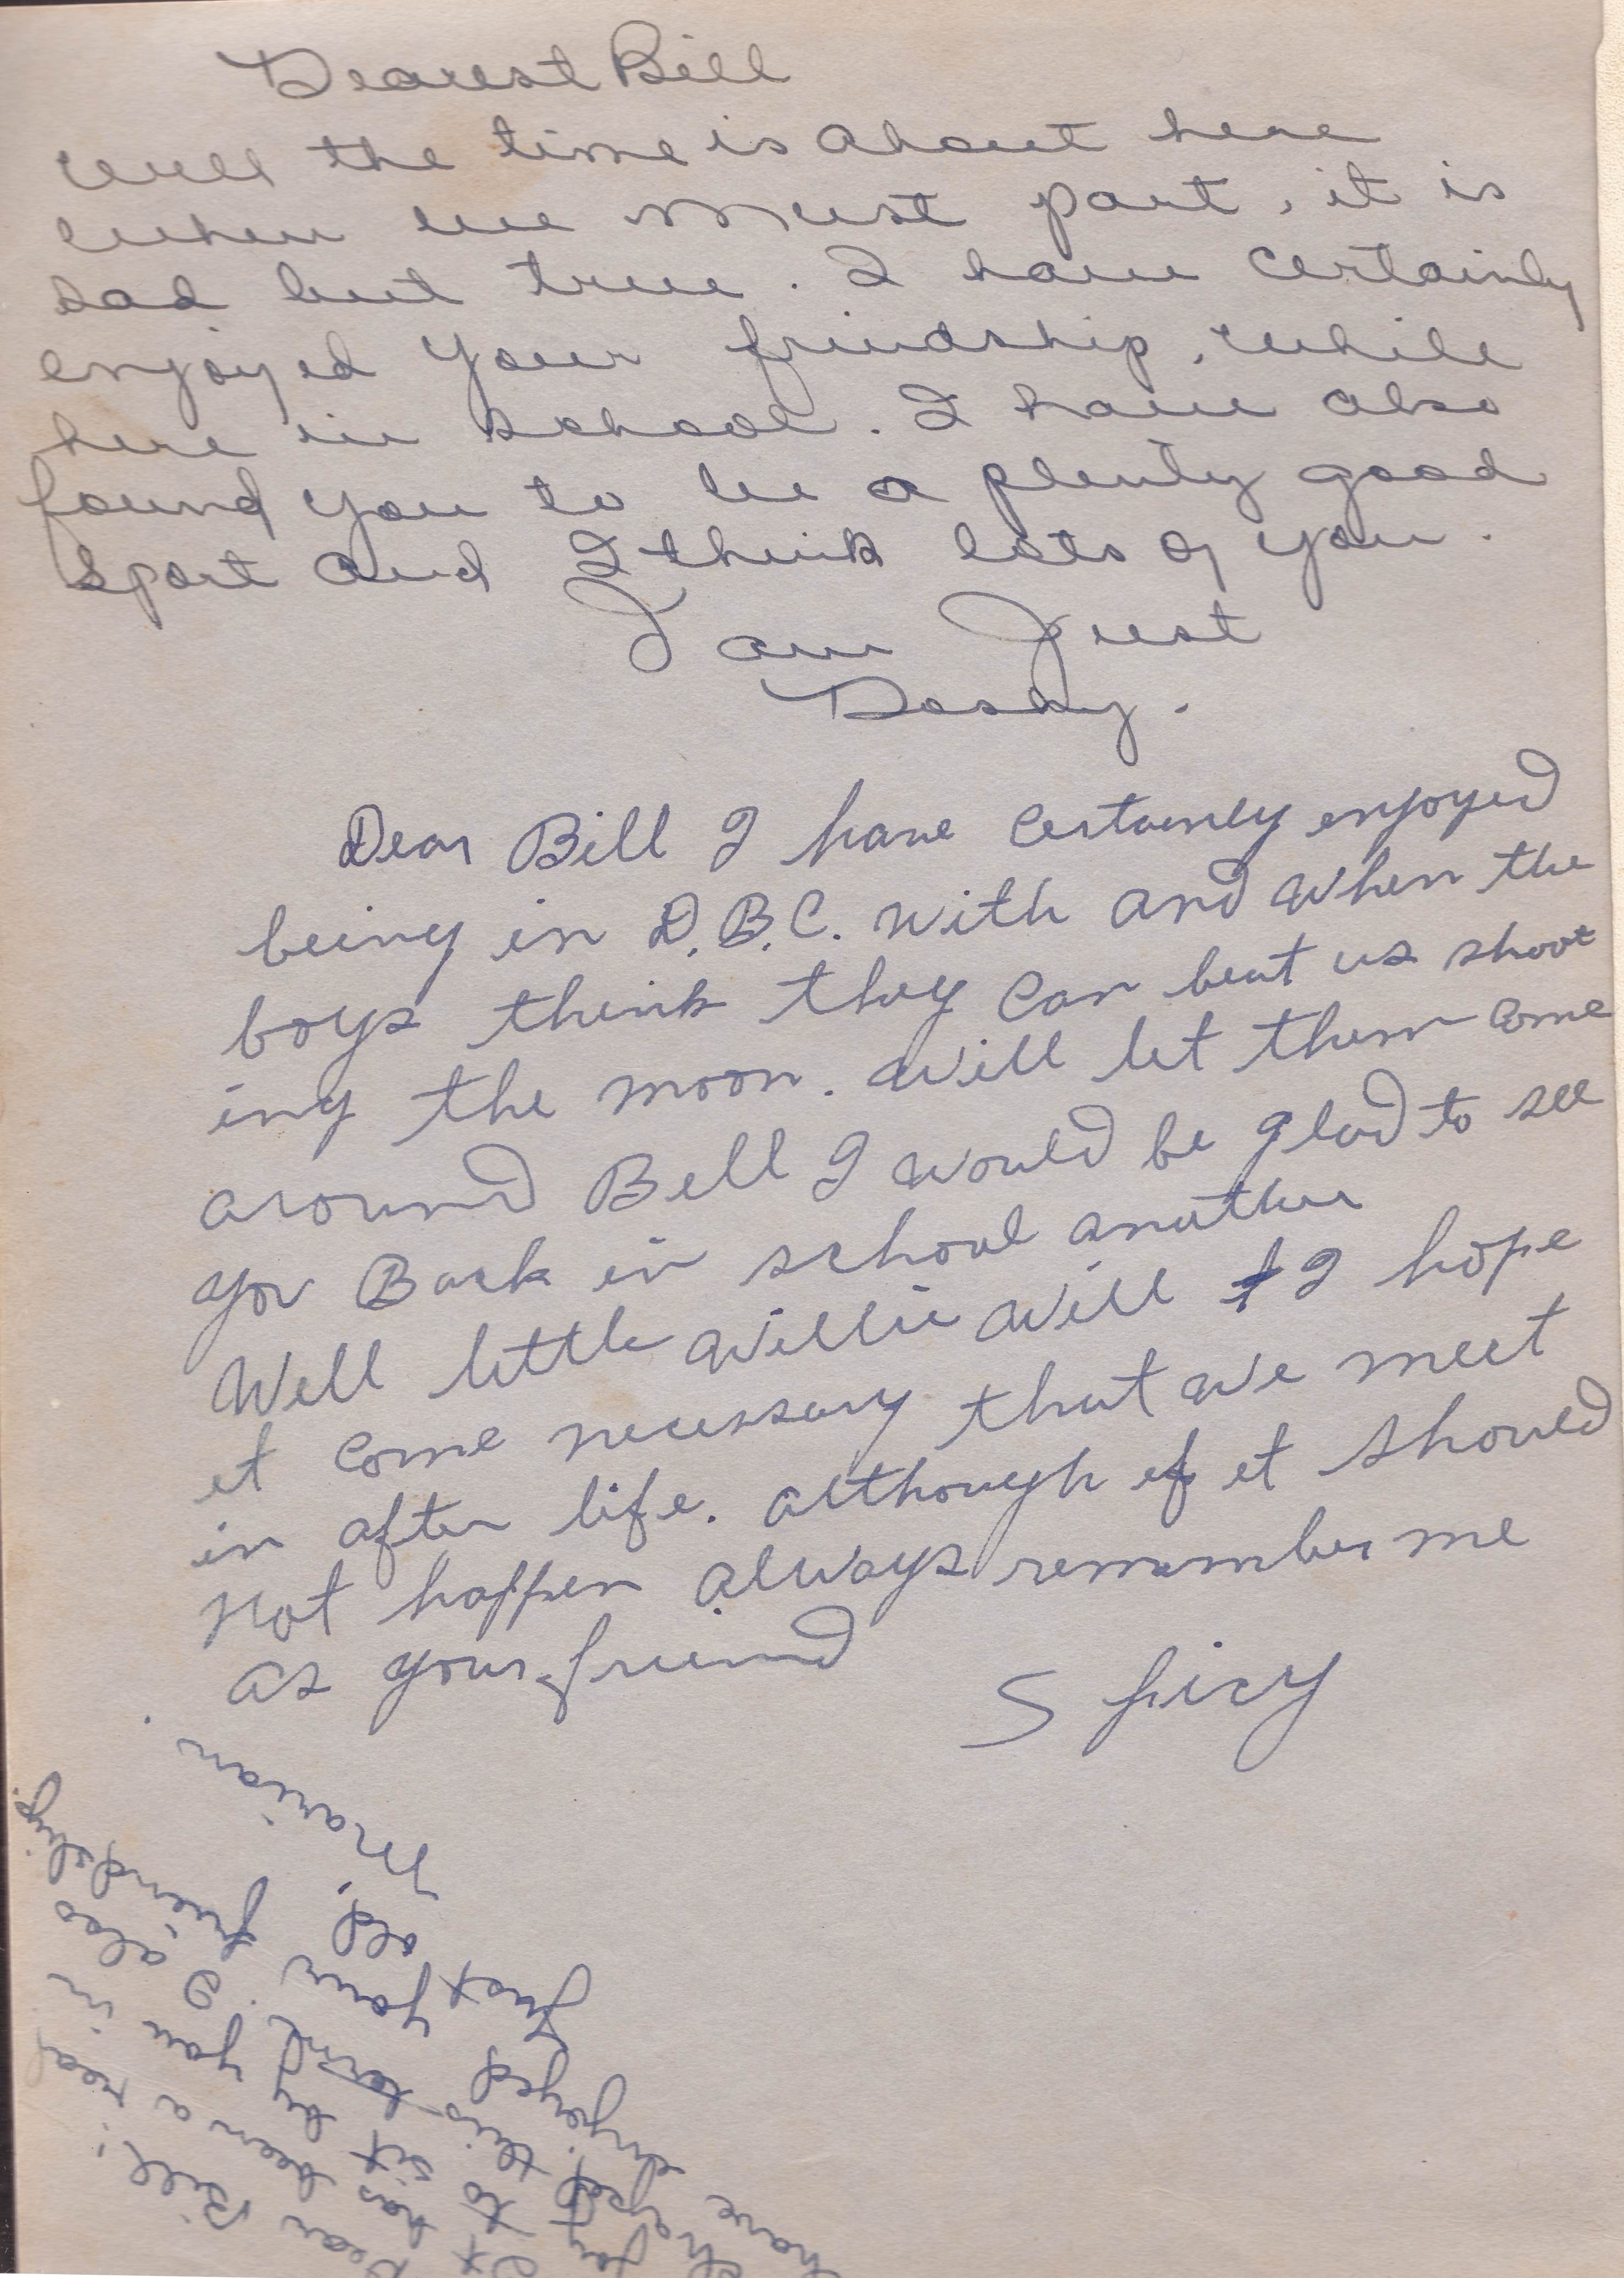 Dearest Bill
Well the time is about here
when we must part, it is
sad but true. I have certainly
enjoyed your friendship, while
here in school. I have also
found you to be a plenty good
sport and I think lots of you.
I am Just
Dashy.
Dear Bill I have certainly enjoyed
being in D.B.C. with and when the
boys think they can beat us shoot
ing the moon. Will let them come
around Bell I would be glad to see
you Back in school another
Well little Willie will I hope
it come necessary that we meet
in after life. Although if it should
not happen always remember me
as your friend
Spicy
Dear Bill;
It has been a real
joy to sit by you in
the dept. this term. I also
have enjoyed your friendship.
Just
old,
Marian.